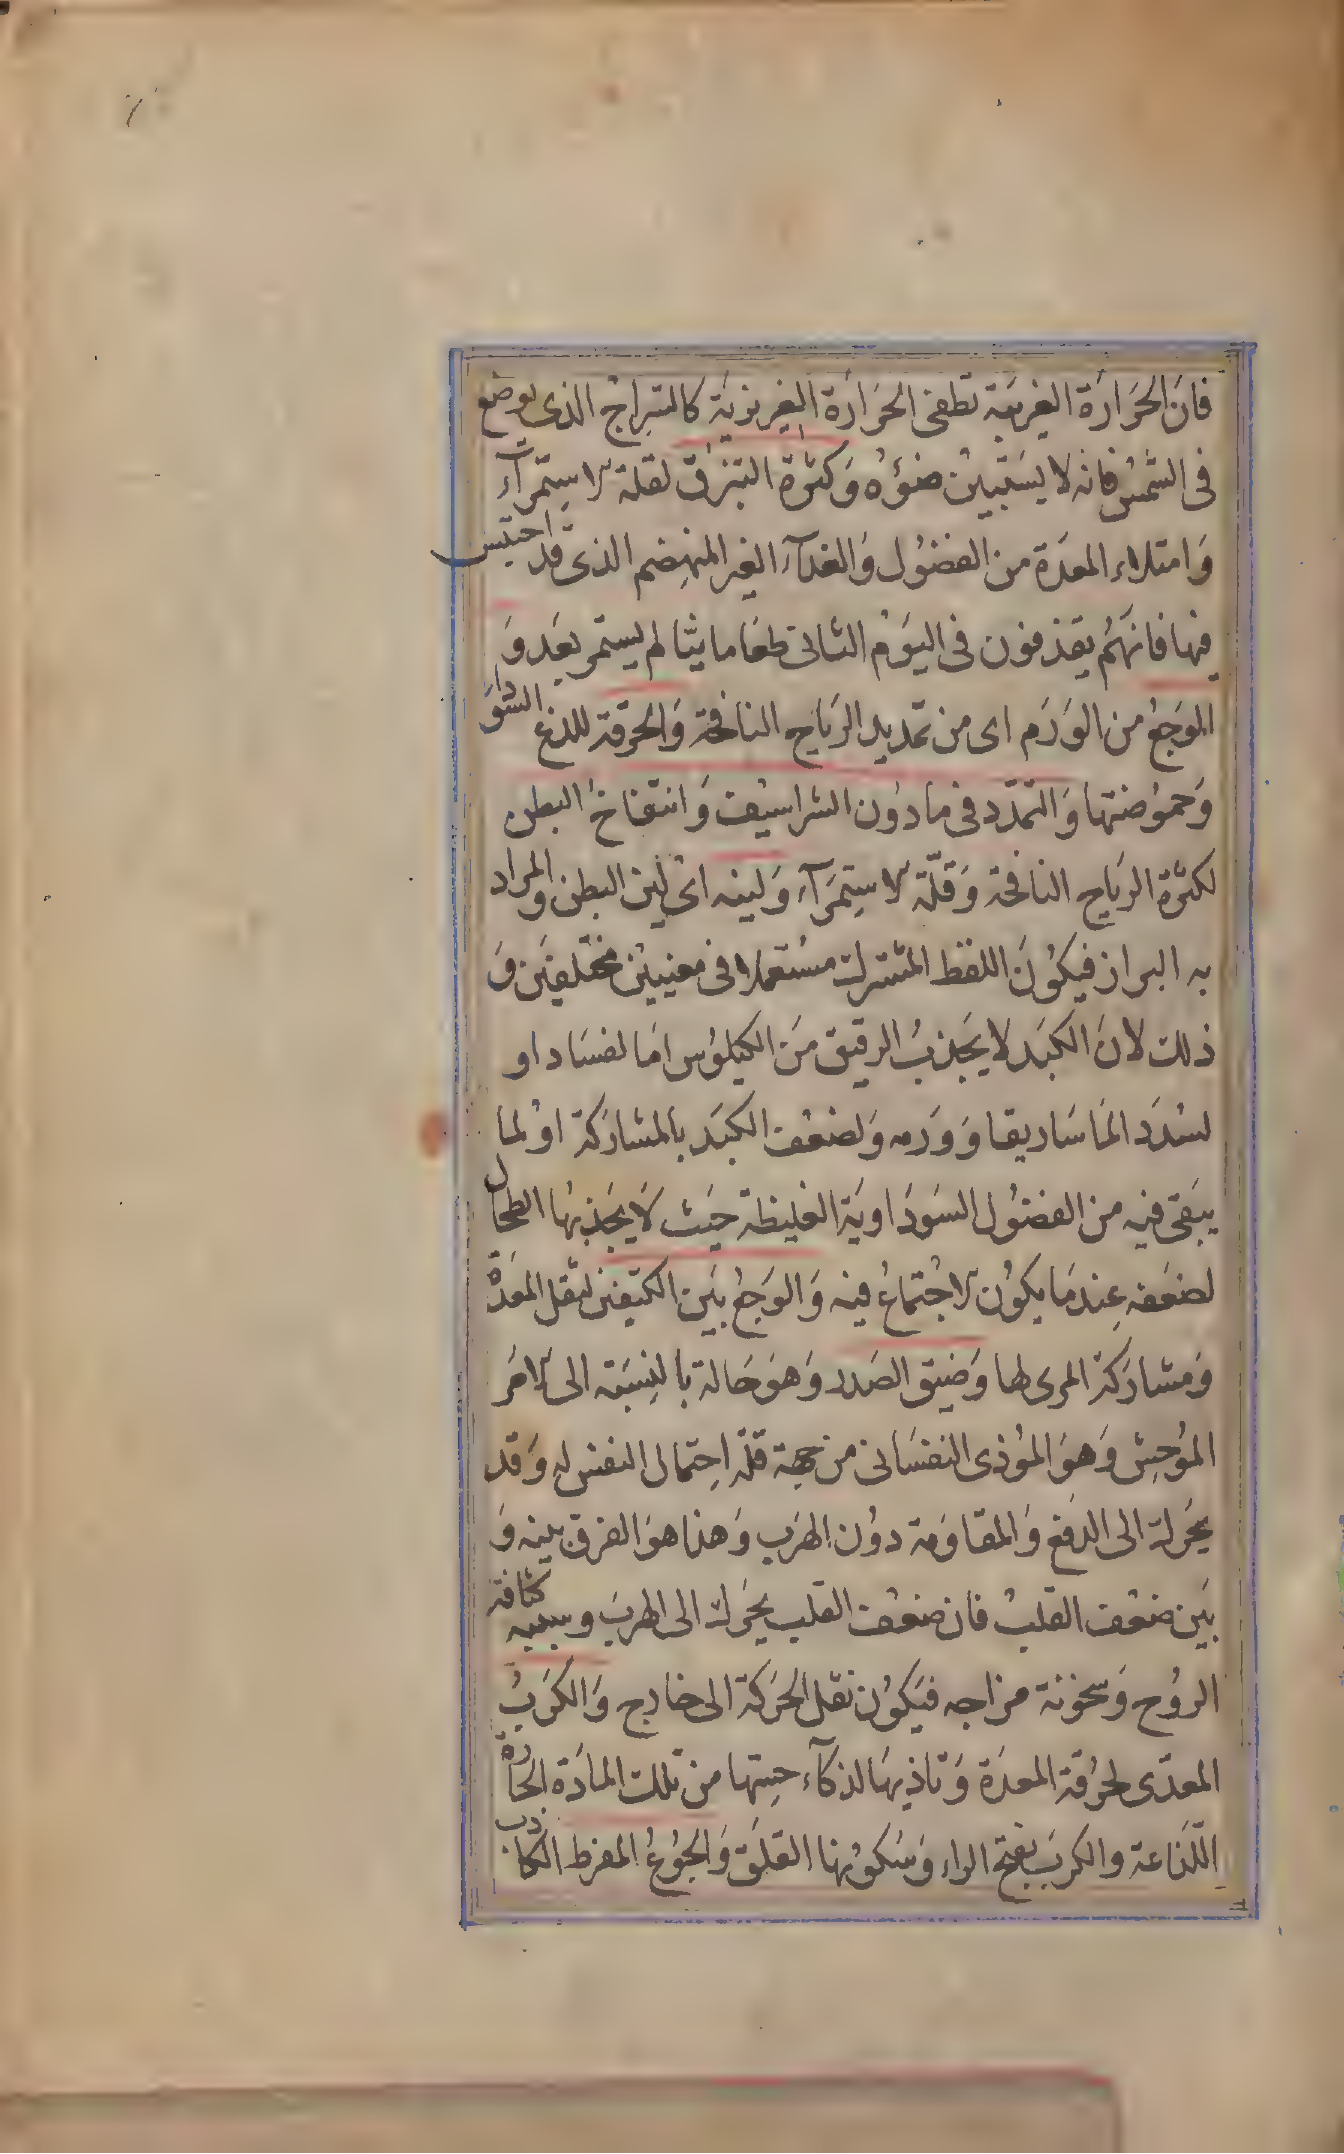 فانَ الحَرَارَة الغريبَة تطفئ الحَرَارَة الغريزيَة كالسّراج الذى يوضع
فى الشمس فانه لا يسَتبيُن ضوُءُه وَكثرُة التبزق لقلة الاستمرآء
وَامتلاء المعدَة من الفضوُل وَالغدآء الغير المنهضم الذى قد احتبس
فيها فانهَمُ يقذفون فى اليوَم الثانى طعَاما نيّا لم يستمر بعَد وَ
الوَجعُ من الوَرَم اى من تمديد الريَاح النافخة وَالحرقة للذع السَوَدا
وَحموُضتها وَالتمدّد فى ما دوُن الشراسيُف وَانتفاخُ البطن
لكثرَة الريَاح النافخة وَقلّة الاستِمرَآء وَلينه اىُ ليُن البطن والمراد
به البراز فيكوُنَ اللفظ المشترك مسُتعملا فى معنييُن مختلفيَن وَ
ذلك لانَ الكبَد لا يَجذبُ الرقيق مَن الكيلوُس امَا لفسَاد او
لسُدَد المَاسَاريقا وَوَرمه وَلضعُف الكبَد بالمشاركَة اوُ لما
يبَقى فيه من الفضوُل السَوَدَاويَة الغليظة حيَث لاَ يجَذبهَا الطحال
لضعَفه عِندمَا يكوُن الاجُتماعُ فيه وَالوَجعُ بيَن الكتفيَن لثقل المعَدَة
وَمشارَكَة المرى لها وَضيَق الصَدر وَهوَ حَالة بالنسِبَة الى الامَر
الموُحِش وَهوَ الموُذى النفسَانى من جهة قلّة اِحتمال النفسِ له وَقد
يحَرك الى الدَفع وَالمقاوَمة دوُن الهرَب وَهذا هوَ الفرق بيَنه وَ
بيَن ضعُف القلب فان ضعُف القلب يحَرك الى الهرَب وسببه كثافة
الروُح وَسخونة مزاجه فيَكوُن نقل الحَركَة الى خارج وَالكرَبُ
المعدّى لحرُقة المعدَة وَتاذيهَا لذكآء حِسّها من تلك المادَة الحَارَة
اللّذاعة والكربَ بفتح الراء وَسُكوُنها القلَق وَالجوُعُ المفرط الكاذب